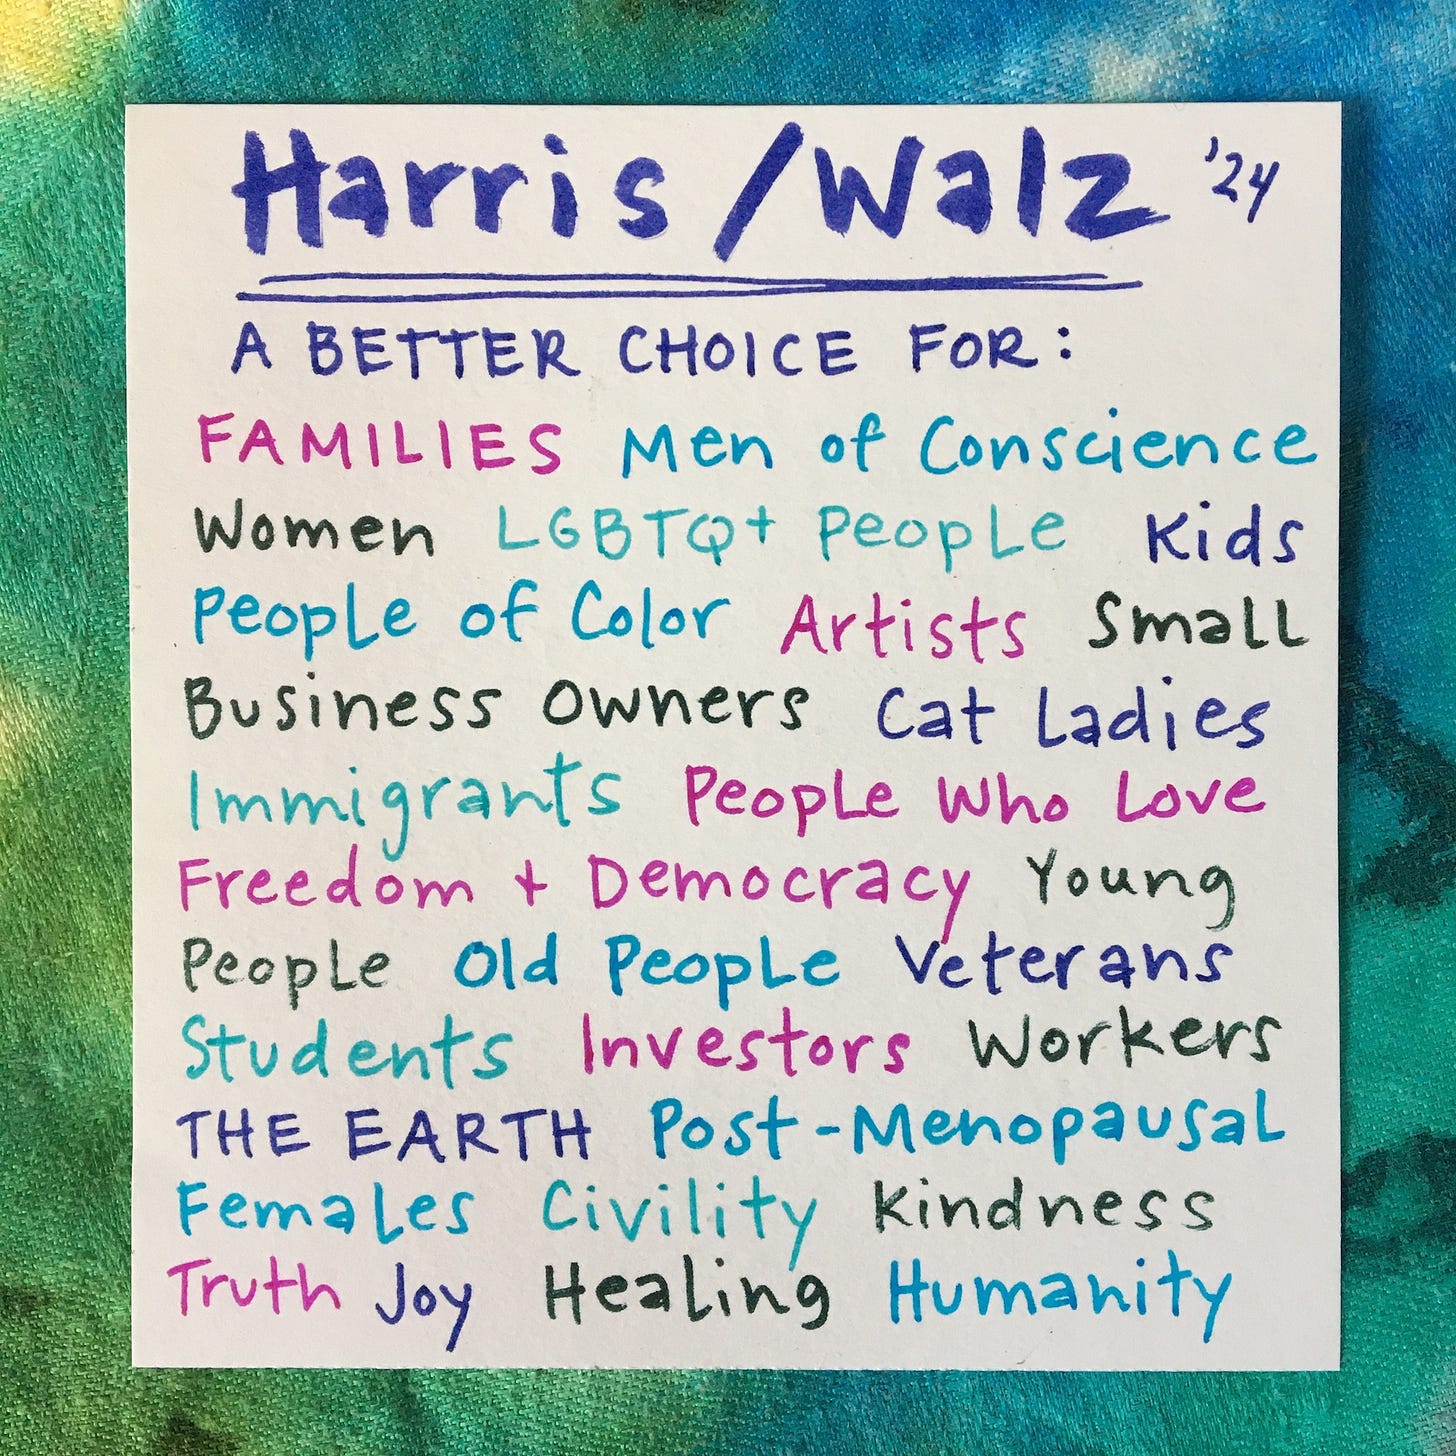 Harris/Walz '24
A BETTER CHOICE FOR:
FAMILIES Men of Conscience
Women LGBTQ+ People Kids
People of Color Artists Small
Business Owners Cat Ladies
Immigrants People Who Love
Freedom + Democracy Young
People Old People Veterans
Students Investors Workers
THE EARTH Post-Menopausal
Females Civility Kindness
Truth Joy Healing Humanity